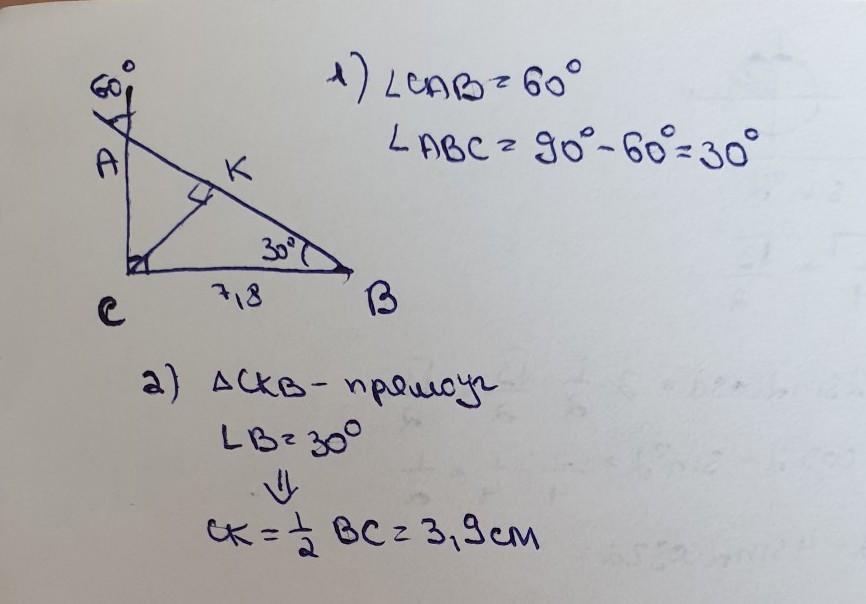 60°
A
K
30°
7,8
C
B
1) ∠CAB = 60°
∠ABC = 90° - 60° = 30°
2) △CKB - прямоуг
∠B = 30°
⇓
CK = 1/2 BC = 3,9 см